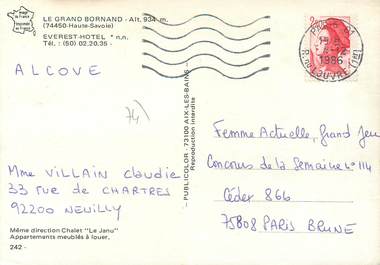 LE GRAND BORNAND - Alt. 934 m.
(74450-Haute-Savoie)
EVEREST-HOTEL * n.n.
Tél. : (50) 02.20.35 -
ALCOVE
74)
Mme VILLAIN Claudie
33 rue de CHARTRES
92200 NEUILLY
Même direction Chalet "Le Janu"
Appartements meublés à louer.
242 -
- PUBLICOLOR - 73100 AIX-LES-BAINS -
Reproduction interdite
PARIS 01
1986
R. DU LOUVRE
Femme Actuelle, Grand Jeu
Concours de la Semaine n° 114
Cédex 866
75808 PARIS BRUNE